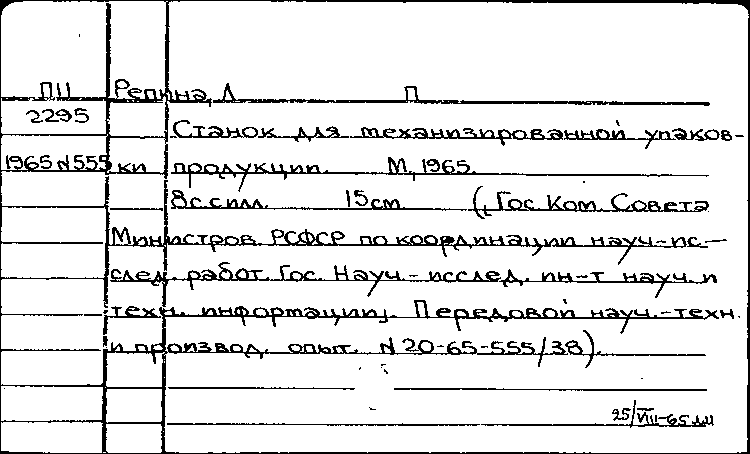 П11 Репина, Л П
2295
Станок для механизированной упаков-
1965 N555 ки продукции. М, 1965.
8с.силл. 15см ([Гос. Ком. Совета
Министров РСФСР по координации науч-ис-
след. работ. Гос. Науч.-исслед. ин-т науч. и
техн. информации]. Передовой науч.-техн.
и производ. опыт. N 20-65-555/38).
25/VIII-65